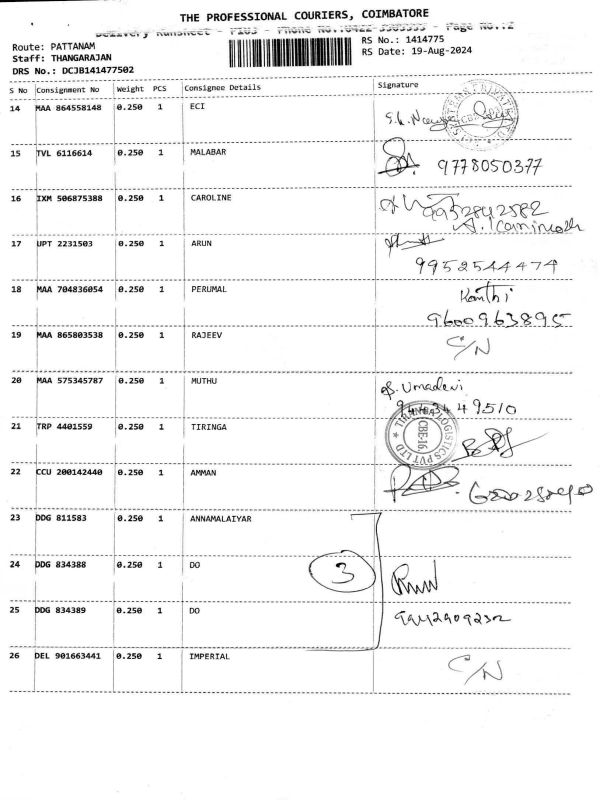 THE PROFESSIONAL COURIERS, COIMBATORE
Delivery Runsheet - P103 - Phone No.:0422- - Page No.:2
Route: PATTANAM
Staff: THANGARAJAN
DRS No.: DCJB141477502
RS No.: 1414775
RS Date: 19-Aug-2024
S No Consignment No Weight PCS Consignee Details Signature
14 MAA 864558148 0.250 1 ECI
15 TVL 6116614 0.250 1 MALABAR 9778050377
16 IXM 506875388 0.250 1 CAROLINE 9952842582
17 UPT 2231503 0.250 1 ARUN
9952544474
18 MAA 704836054 0.250 1 PERUMAL Kanthi
9600963895
19 MAA 865803538 0.250 1 RAJEEV C/N
20 MAA 575345787 0.250 1 MUTHU S. Umadevi
21 TRP 4401559 0.250 1 TIRINGA
THANGA LOGISTICS PVT LTD
CBE-16
22 CCU 200142440 0.250 1 AMMAN
23 DDG 811583 0.250 1 ANNAMALAIYAR
24 DDG 834388 0.250 1 DO 3
25 DDG 834389 0.250 1 DO
26 DEL 901663441 0.250 1 IMPERIAL C/N